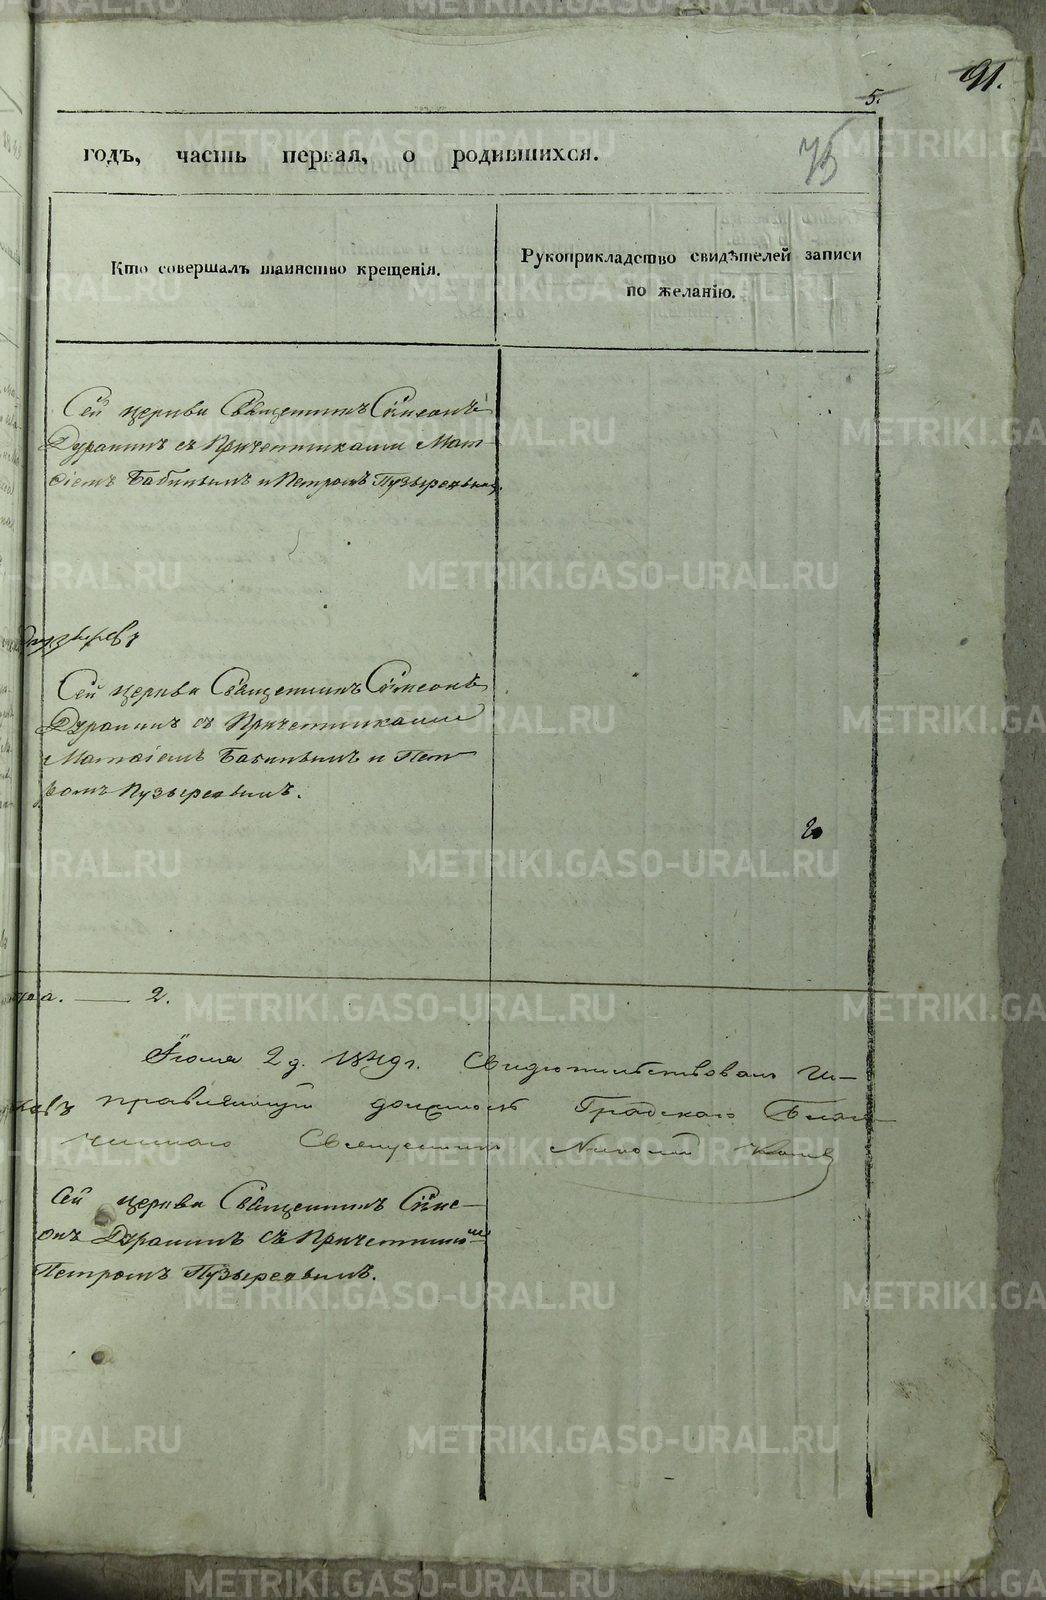 91.
5.
75
годъ, часть первая, о родившихся.
Кто совершалъ таинство крещенія.
Рукоприкладство свидѣтелей записи
по желанію.
Сей церкви Священникъ Сѵмеонъ
Дурашинъ съ Причетниками Мат-
ѳіемъ Бабинымъ и Петромъ Пузыревымъ.
Пузыревъ
Сей церкви Священникъ Сѵмеонъ
Дурашинъ съ Причетниками
Матѳіемъ Бабинымъ и Пет-
ромъ Пузыревымъ.
2
2.
Іюля 2 д. 1849 г. Свидѣтельствовалъ Ис-
правляющій должность Градскаго Благо-
чиннаго Священникъ Николай
Сей церкви Священникъ Сѵме-
онъ Дурашинъ съ Причетникомъ
Петромъ Пузыревымъ.
METRIKI.GASO-URAL.RU